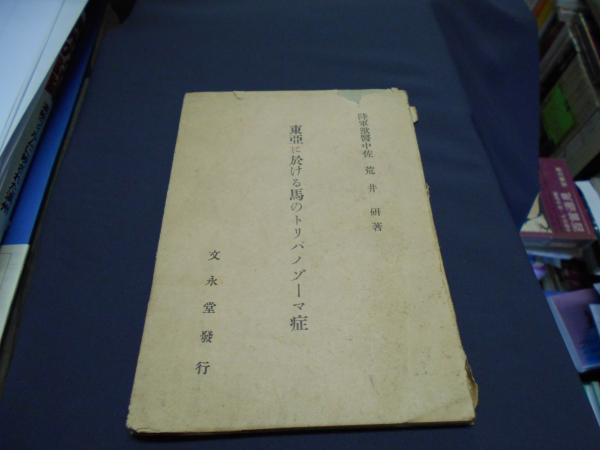 陸軍獣醫中佐 荒井研著
東亞に於ける馬のトリパノゾーマ症
文永堂發行